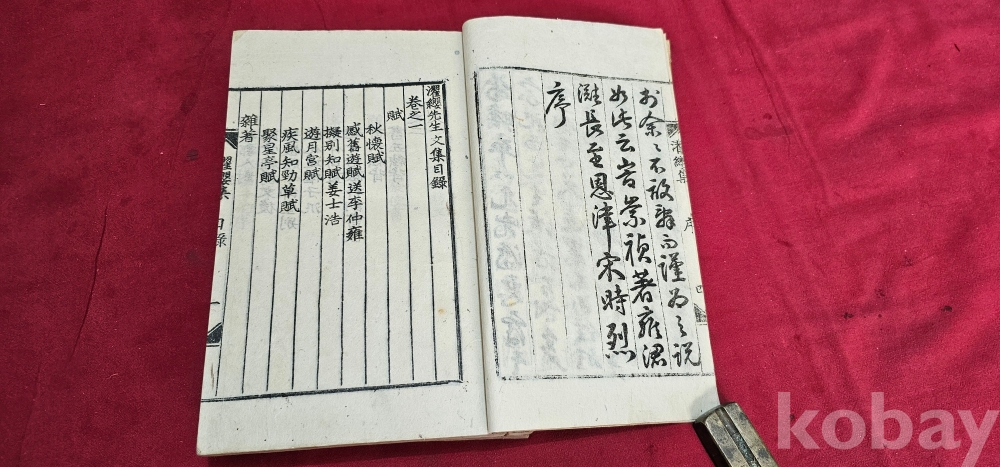 濯纓集 序 四
於余〻不敢辭而謹爲之說
如此云旹崇禎著雍涒
灘長至恩津宋時烈
序
濯纓先生文集目錄
卷之一
賦
秋懷賦
感舊遊賦送李仲雍
擬別知賦姜士浩
遊月宮賦
疾風知勁草賦
聚星亭賦
雜著
濯纓集 目錄 一
kobay